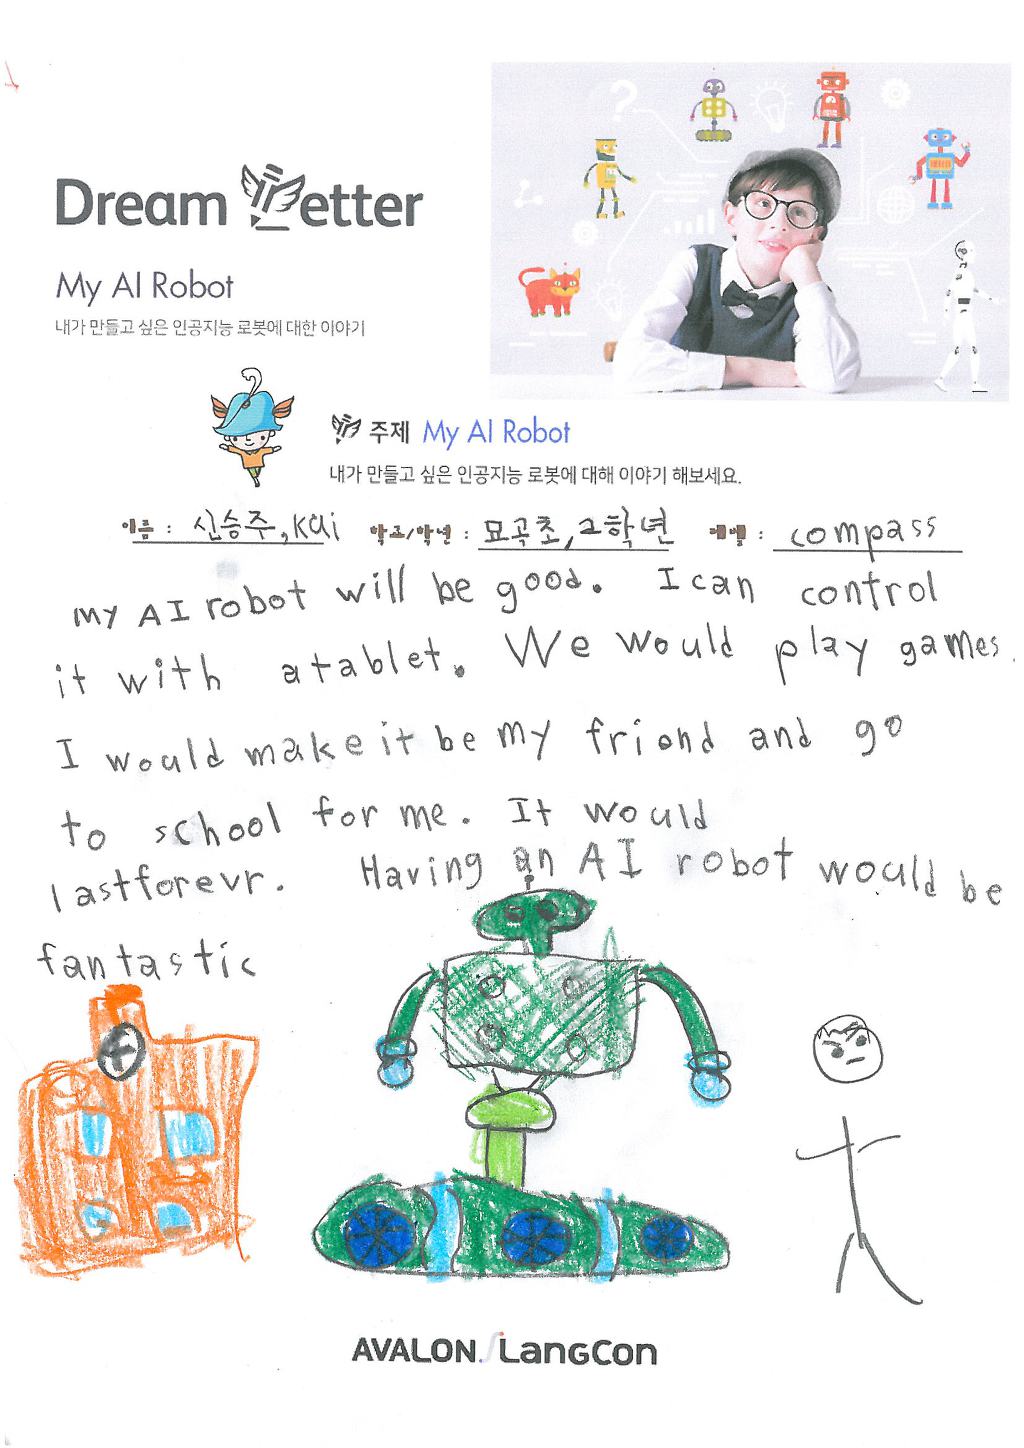 Dream Letter
My AI Robot
내가 만들고 싶은 인공지능 로봇에 대한 이야기
주제 My AI Robot
내가 만들고 싶은 인공지능 로봇에 대해 이야기 해보세요.
이름 : 신승주, kai 학교/학년 : 묘곡초, 2학년 레벨 : compass
my AI robot will be good. I can control
it with a tablet. We would play games.
I would make it be my friond and go
to school for me. It would
last forevr. Having an AI robot would be
fantastic
AVALON LangCon